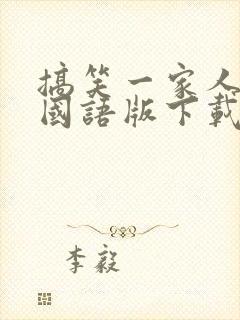 搞笑一家人
國語版下載
李毅